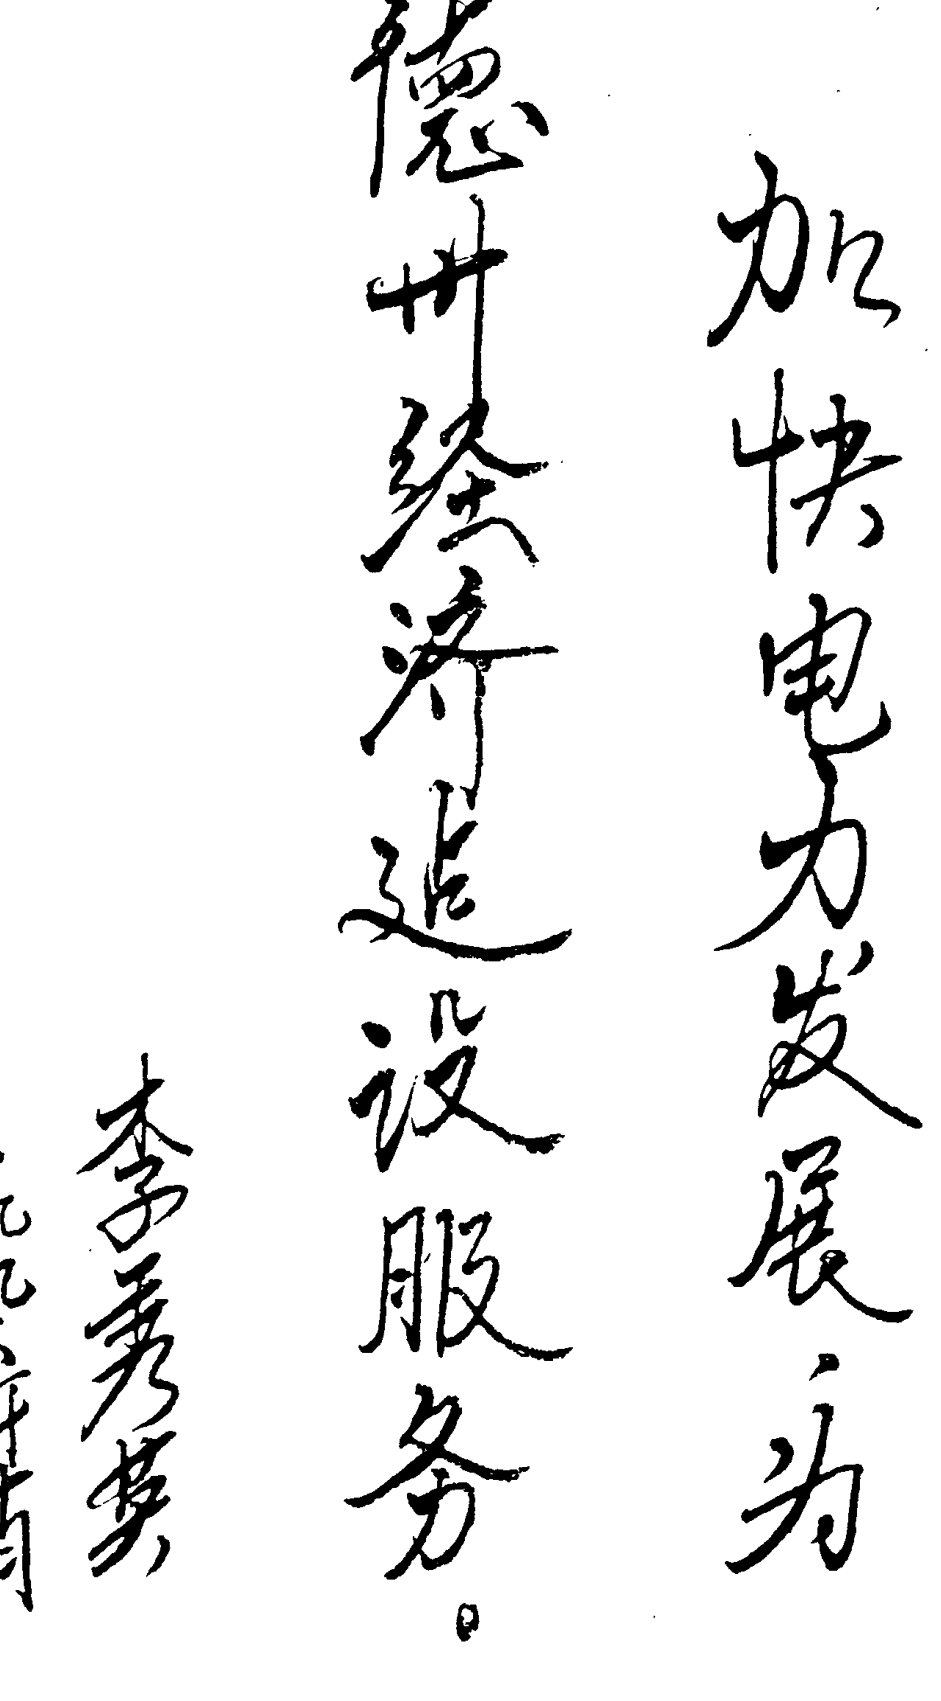 加快电力发展，为
德州经济建设服务。
李秀英